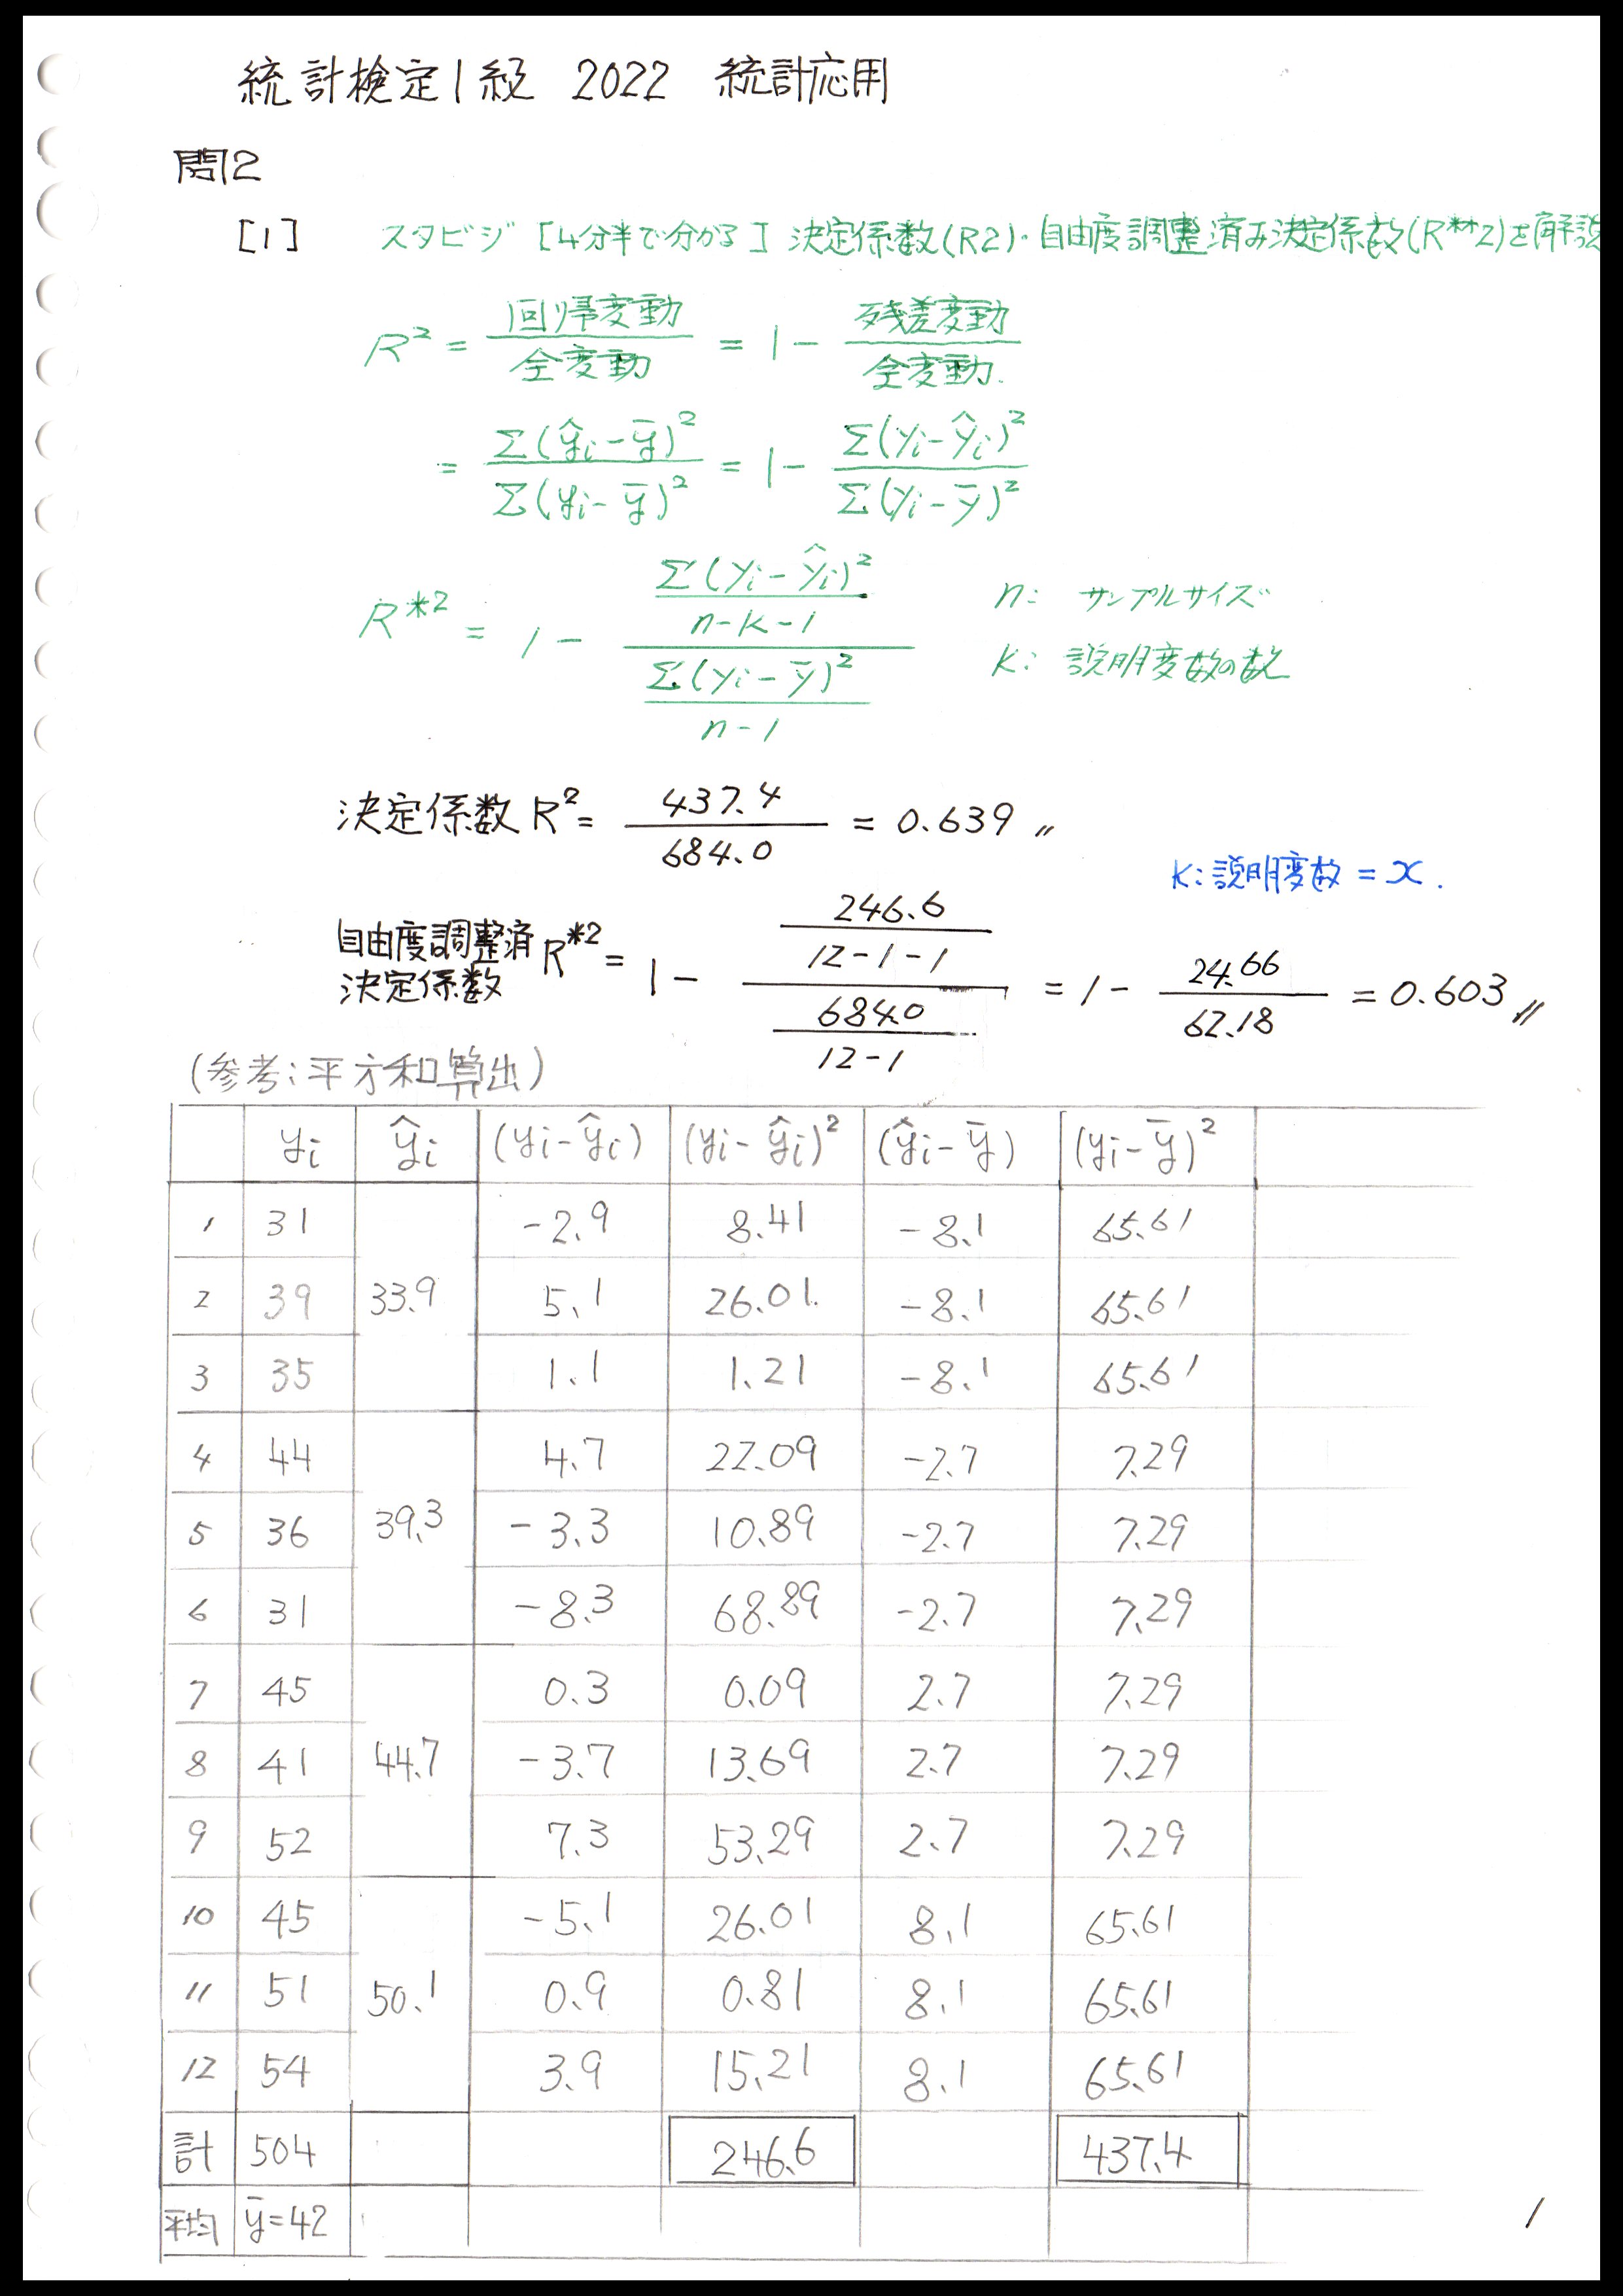 統計検定1級 2022 統計応用
問2
[1] スタビジ [4分半で分かる] 決定係数(R2)・自由度調整済み決定係数(R**2)を解説
R² = 回帰変動/全変動 = 1 - 残差変動/全変動.
= Σ(ŷi-ȳ)²/Σ(yi-ȳ)² = 1 - Σ(yi-ŷi)²/Σ(yi-ȳ)²
R*² = 1 - (Σ(yi-ŷi)²/(n-k-1))/(Σ(yi-ȳ)²/(n-1))
n: サンプルサイズ
k: 説明変数の数
決定係数 R² = 437.4/684.0 = 0.639 〃
k:説明変数 = x.
自由度調整済決定係数 R*² = 1 - (246.6/(12-1-1))/(684.0/(12-1)) = 1 - 24.66/62.18 = 0.603 〃
(参考:平方和算出)
yi ŷi (yi-ŷi) (yi-ŷi)² (ŷi-ȳ) (yi-ȳ)²
1 31 -2.9 8.41 -8.1 65.61
2 39 33.9 5.1 26.01. -8.1 65.61
3 35 1.1 1.21 -8.1 65.61
4 44 4.7 22.09 -2.7 7.29
5 36 39.3 -3.3 10.89 -2.7 7.29
6 31 -8.3 68.89 -2.7 7.29
7 45 0.3 0.09 2.7 7.29
8 41 44.7 -3.7 13.69 2.7 7.29
9 52 7.3 53.29 2.7 7.29
10 45 -5.1 26.01 8.1 65.61
11 51 50.1 0.9 0.81 8.1 65.61
12 54 3.9 15.21 8.1 65.61
計 504 246.6 437.4
平均 ȳ=42
1